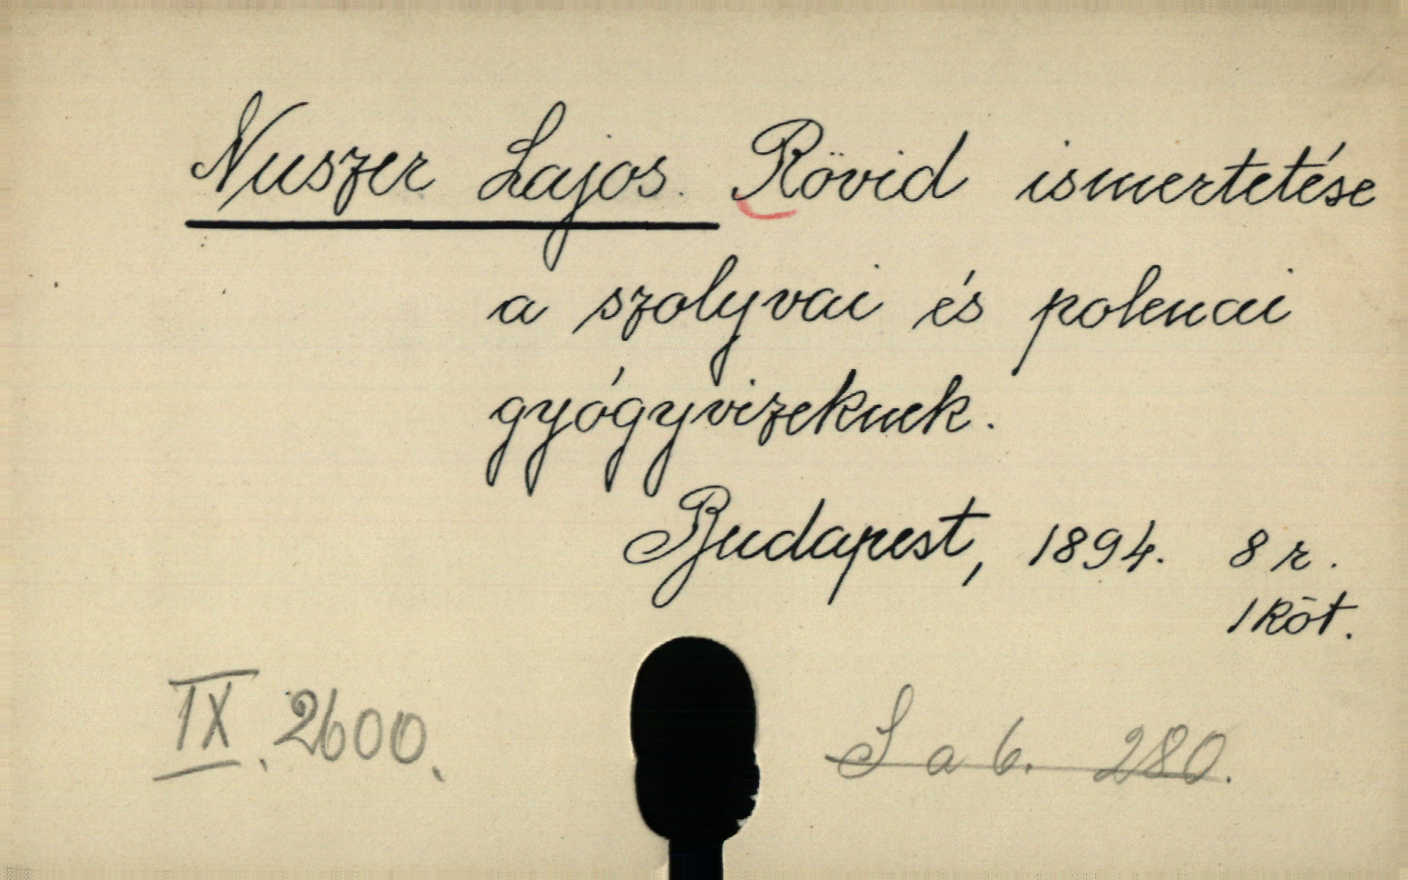 Nuszer Lajos. Rövid ismertetése
a szolyvai és polenai
gyógyvizeknek.
Budapest, 1894. 8 r.
1 köt.
IX. 2600.
S a 6. 280.